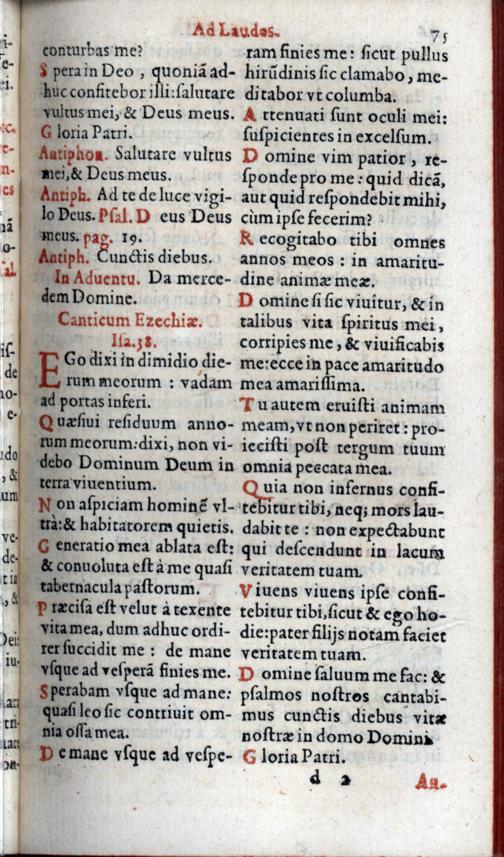 Ad Laudes. 75
conturbas me?
Spera in Deo , quoniã ad-
huc confitebor illi: salutare
vultus mei, & Deus meus.
Gloria Patri.
Antiphon. Salutare vultus
mei, & Deus meus.
Antiph. Ad te de luce vigi-
lo Deus. Psal. Deus Deus
meus. pag. 19.
Antiph. Cunctis diebus.
In Aduentu. Da merce-
dem Domine.
Canticum Ezechiæ.
Isa. 38.
EGo dixi in dimidio die-
rum meorum : vadam
ad portas inferi.
Quæsiui residuum anno-
rum meorum: dixi, non vi-
debo Dominum Deum in
terra viuentium.
Non aspiciam hominẽ vl-
trà: & habitatorem quietis.
Generatio mea ablata est:
& conuoluta est à me quasi
tabernacula pastorum.
Præcisa est velut à texente
vita mea, dum adhuc ordi-
rer succidit me : de mane
vsque ad vesperã finies me.
Sperabam vsque ad mane:
quasi leo sic contriuit om-
nia ossa mea.
De mane vsque ad vespe-
ram finies me : sicut pullus
hirũdinis sic clamabo, me-
ditabor vt columba.
Attenuati sunt oculi mei:
suspicientes in excelsum.
Domine vim patior , re-
sponde pro me : quid dicã,
aut quid respondebit mihi,
cùm ipse fecerim?
Recogitabo tibi omnes
annos meos : in amaritu-
dine animæ meæ.
Domine si sic viuitur, & in
talibus vita spiritus mei ,
corripies me , & viuificabis
me: ecce in pace amaritudo
mea amarissima.
Tu autem eruisti animam
meam, vt non periret : pro-
iecisti post tergum tuum
omnia peccata mea.
Quia non infernus confi-
tebitur tibi, neq; mors lau-
dabit te : non expectabunt
qui descendunt in lacum
veritatem tuam.
Viuens viuens ipse confi-
tebitur tibi, sicut & ego ho-
die: pater filijs notam faciet
veritatem tuam.
Domine saluum me fac: &
psalmos nostros cantabi-
mus cunctis diebus vitæ
nostræ in domo Domini.
Gloria Patri.
d 2 An.